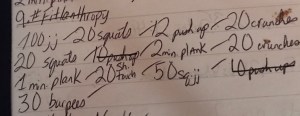 100 jj / 20 squats / 12 push up / 20 crunches
20 squats / 10 pushup / 2 min. plank / 20 crunches
1 min. plank / 20 sh. touch / 50 sqjj / 10 push ups
30 burpees /